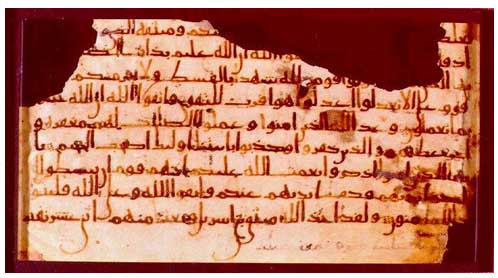 كم وميثقه الذي
وا الله ان الله عليم بذات ا
كونوا قومين لله شهدا بالقسط ولا يجرمنكم
قوم على الا تعدلوا اعدلوا هو اقرب للتقوى واتقوا الله ان الله
بما تعملون وعد الله الذين امنوا وعملوا الصلحت لهم مغفرة و
اجر عظيم والذين كفروا وكذبوا بايتنا اولئك اصحب الجحيم يا
يها الذين امنوا اذكروا نعمت الله عليكم اذ هم قوم ان يبسطوا ا
ليكم ايديهم فكف ايديهم عنكم واتقوا الله وعلى الله فليتو
كل المومنون ولقد اخذ الله ميثق بني اسريل وبعثنا منهم اثنى عشر نقيبا